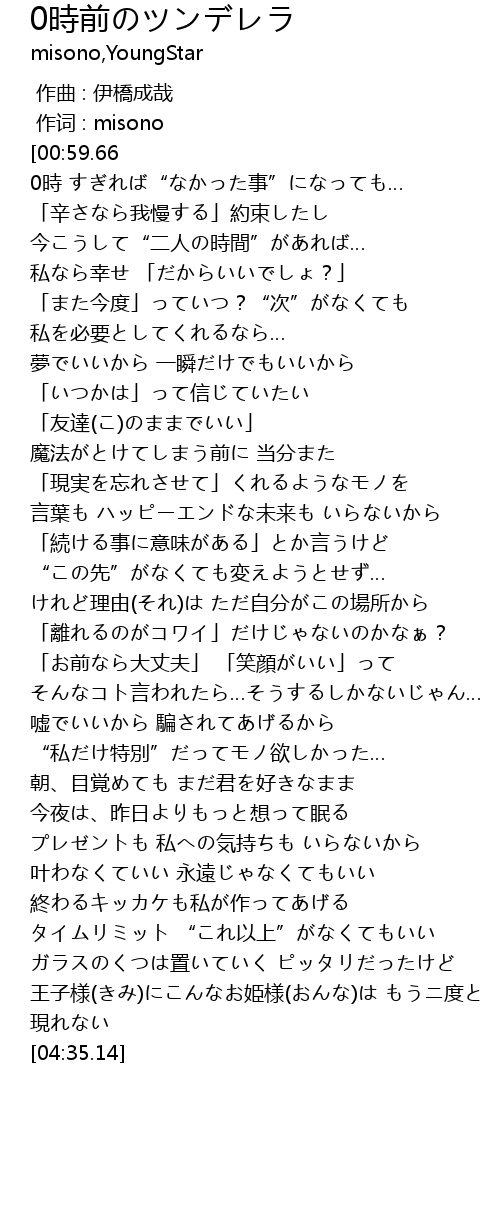 0時前のツンデレラ
misono,YoungStar
作曲 : 伊橋成哉
作词 : misono
[00:59.66
0時 すぎれば“なかった事”になっても…
「辛さなら我慢する」約束したし
今こうして“二人の時間”があれば…
私なら幸せ 「だからいいでしょ？」
「また今度」っていつ？“次”がなくても
私を必要としてくれるなら…
夢でいいから 一瞬だけでもいいから
「いつかは」って信じていたい
「友達(こ)のままでいい」
魔法がとけてしまう前に 当分また
「現実を忘れさせて」くれるようなモノを
言葉も ハッピーエンドな未来も いらないから
「続ける事に意味がある」とか言うけど
“この先”がなくても変えようとせず…
けれど理由(それ)は ただ自分がこの場所から
「離れるのがコワイ」だけじゃないのかなぁ？
「お前なら大丈夫」 「笑顔がいい」って
そんなコト言われたら…そうするしかないじゃん…
嘘でいいから 騙されてあげるから
“私だけ特別”だってモノ欲しかった…
朝、目覚めても まだ君を好きなまま
今夜は、昨日よりもっと想って眠る
プレゼントも 私への気持ちも いらないから
叶わなくていい 永遠じゃなくてもいい
終わるキッカケも私が作ってあげる
タイムリミット “これ以上”がなくてもいい
ガラスのくつは置いていく ピッタリだったけど
王子様(きみ)にこんなお姫様(おんな)は もう二度と
現れない
[04:35.14]